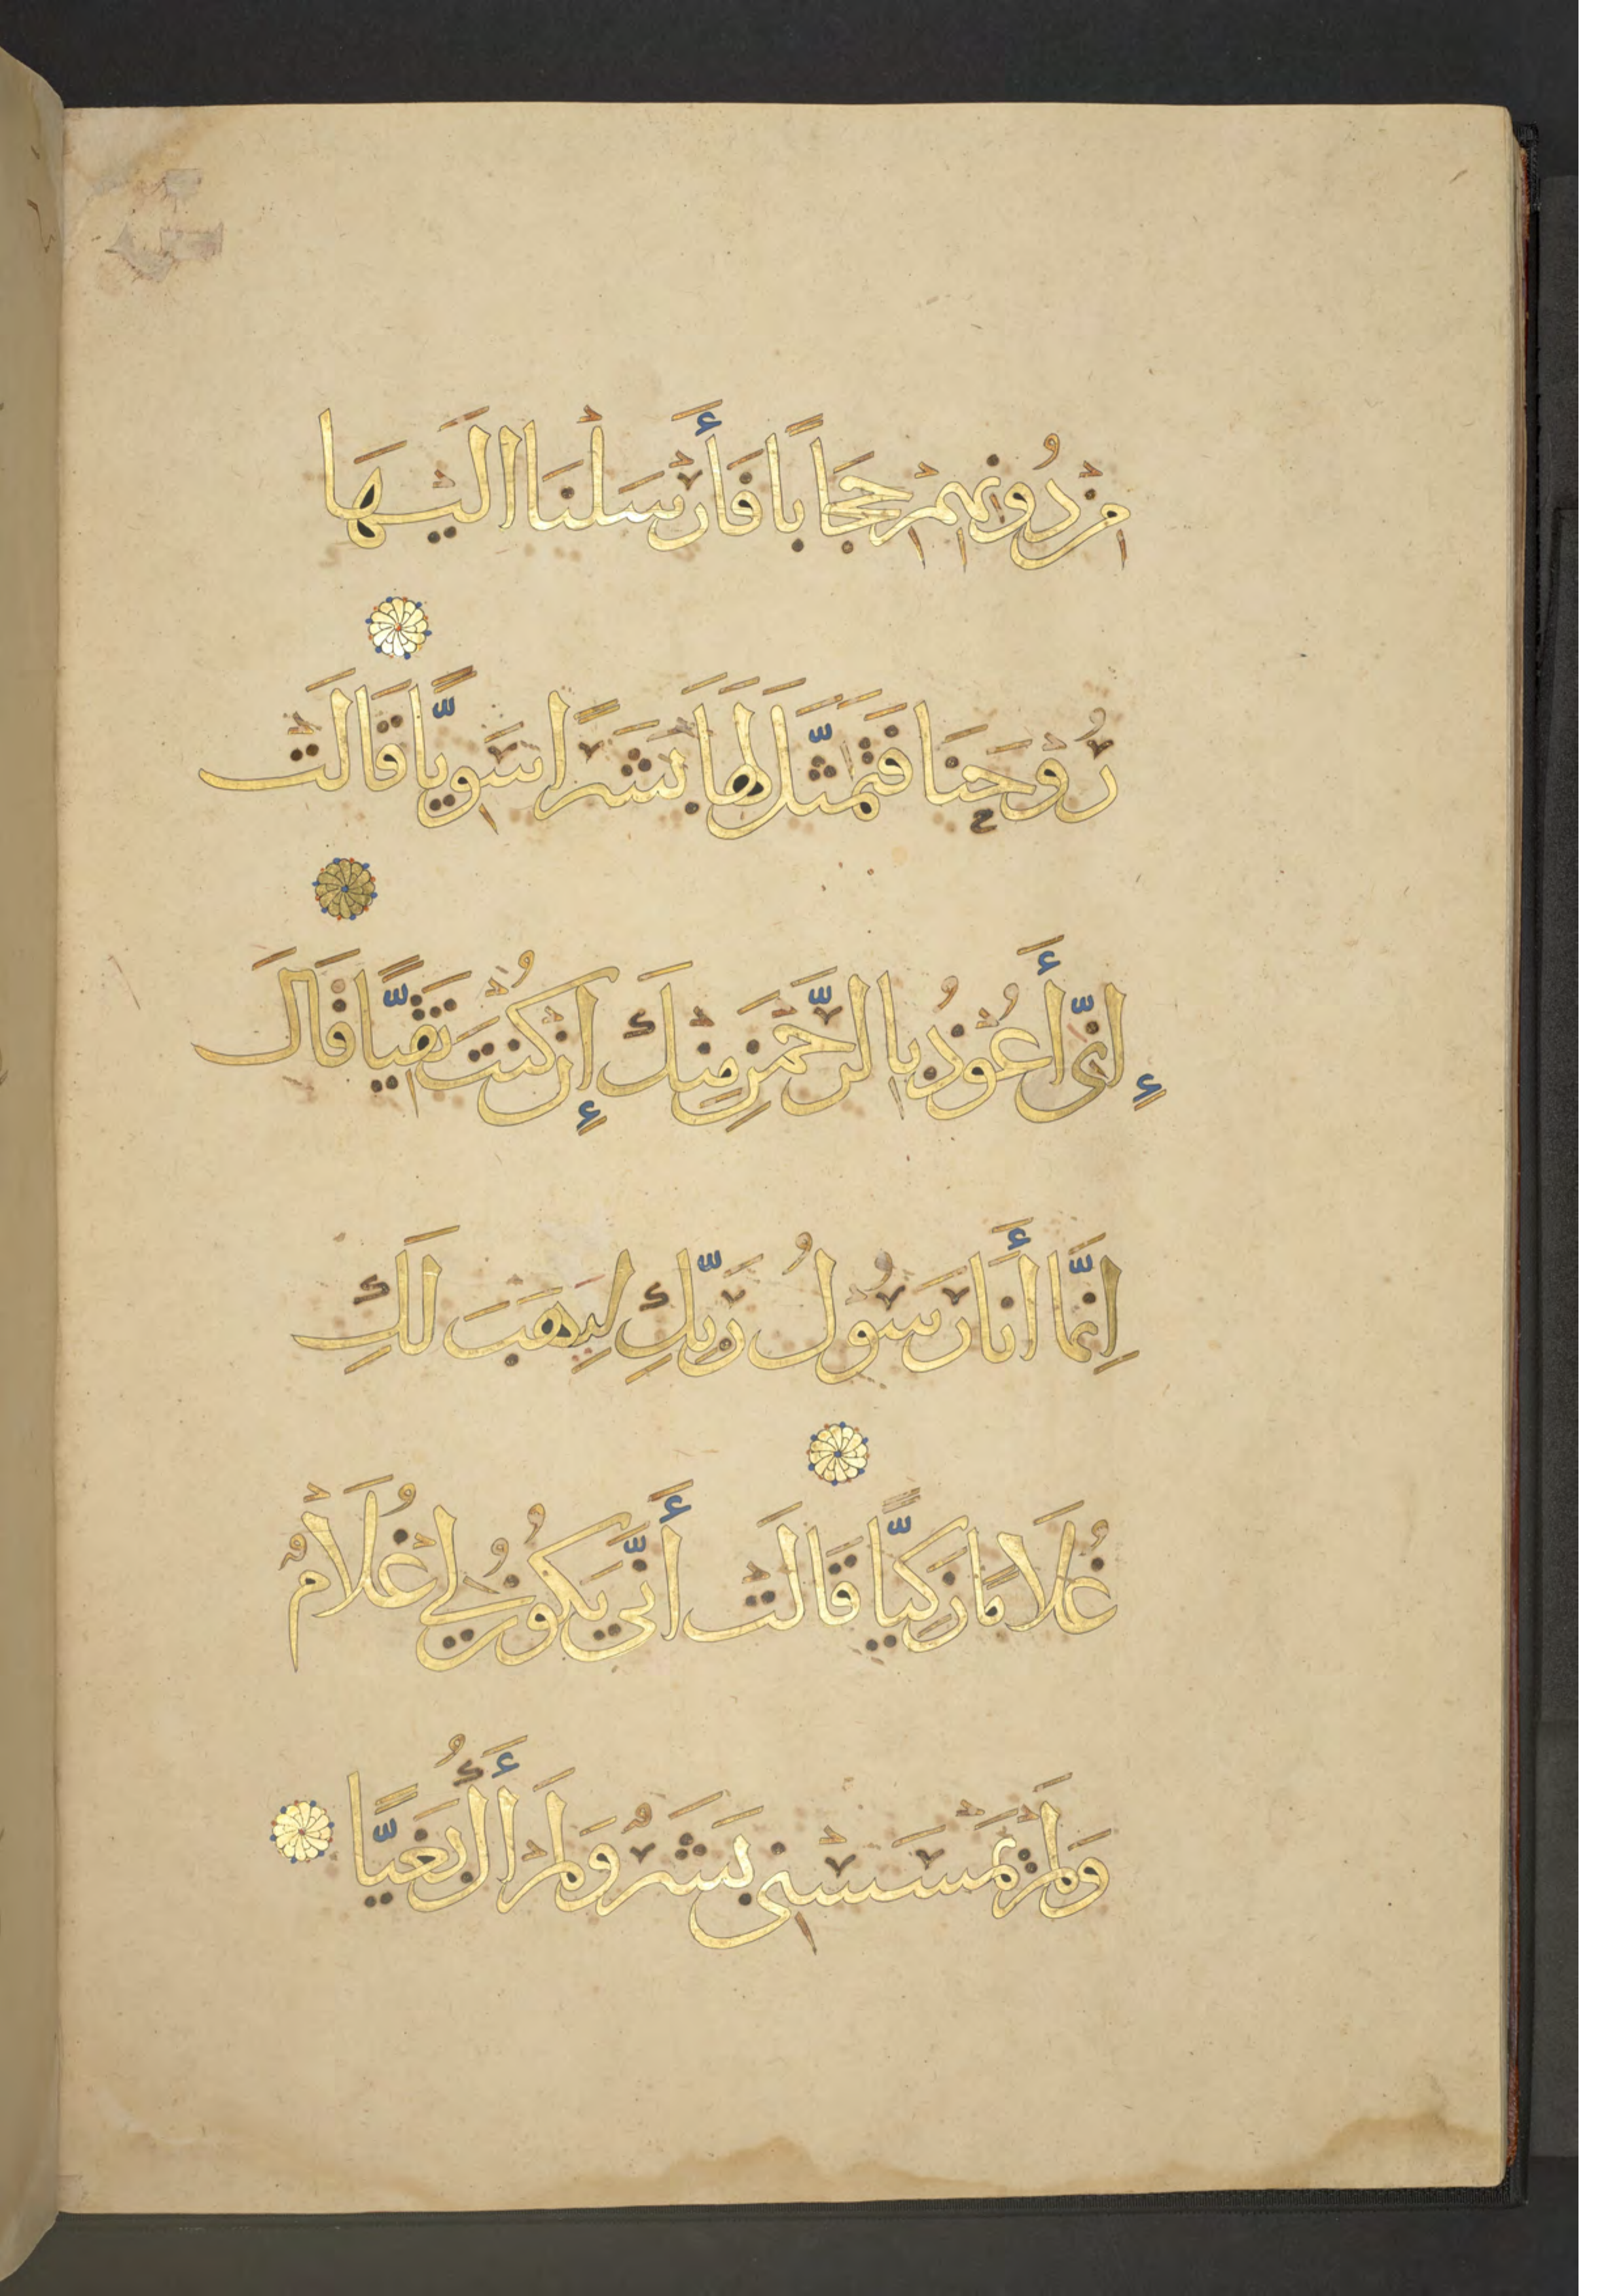 مِنْ دُونِهِمْ حِجَابًا فَأَرْسَلْنَا اِلَيْهَا
رُوْحَنَا فَتَمَثَّلَ لَهَا بَشَرًا سَوِيًّا قَالَتْ
إِنِّى أَعُوْذُ بِالرَّحْمَنِ مِنْكَ إِنْ كُنْتَ تَقِيًّا قَالَ
اِنَّمَا أَنَا رَسُوْلُ رَبِّكِ لِيَهَبَ لَكِ
غُلَامًا زَكِيًّا قَالَتْ أَنَّى يَكُوْنُ لِيْ غُلَامٌ
وَلَمْ يَمْسَسْنِى بَشَرٌ وَلَمْ أَكُ بَغِيًّا